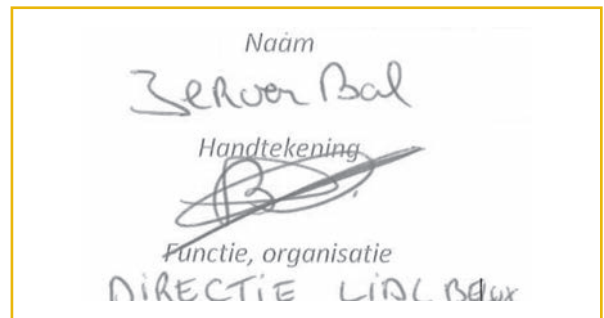 Naam
Jeroen Bal
Handtekening
Functie, organisatie
DIRECTIE LIDL